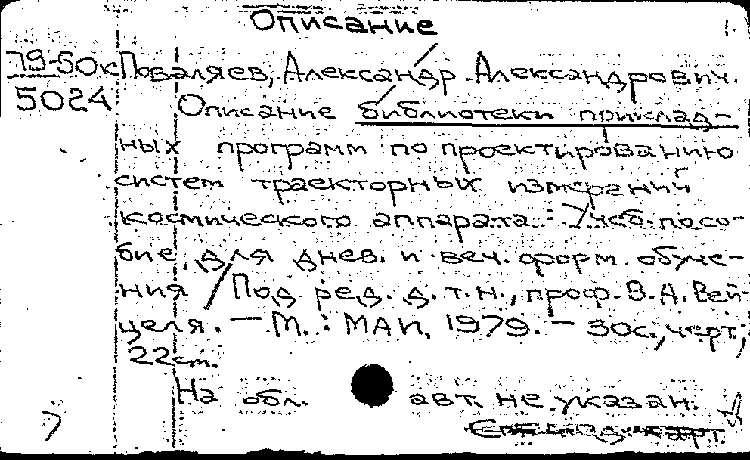 Описание
79-50к Поваляев, Александр Александрович.
5024 Описание библиотеки приклад-
ных программ по проектированию
систем траекторных измерений
космического аппарата: Учеб. посо-
бие, для днев. и веч. форм обуче-
ния / Под ред. д.т.н., проф. В.А. Вей-
целя. — М.: МАИ, 1979. — 30с., черт.;
22 см.
На обл. авт. не указан.